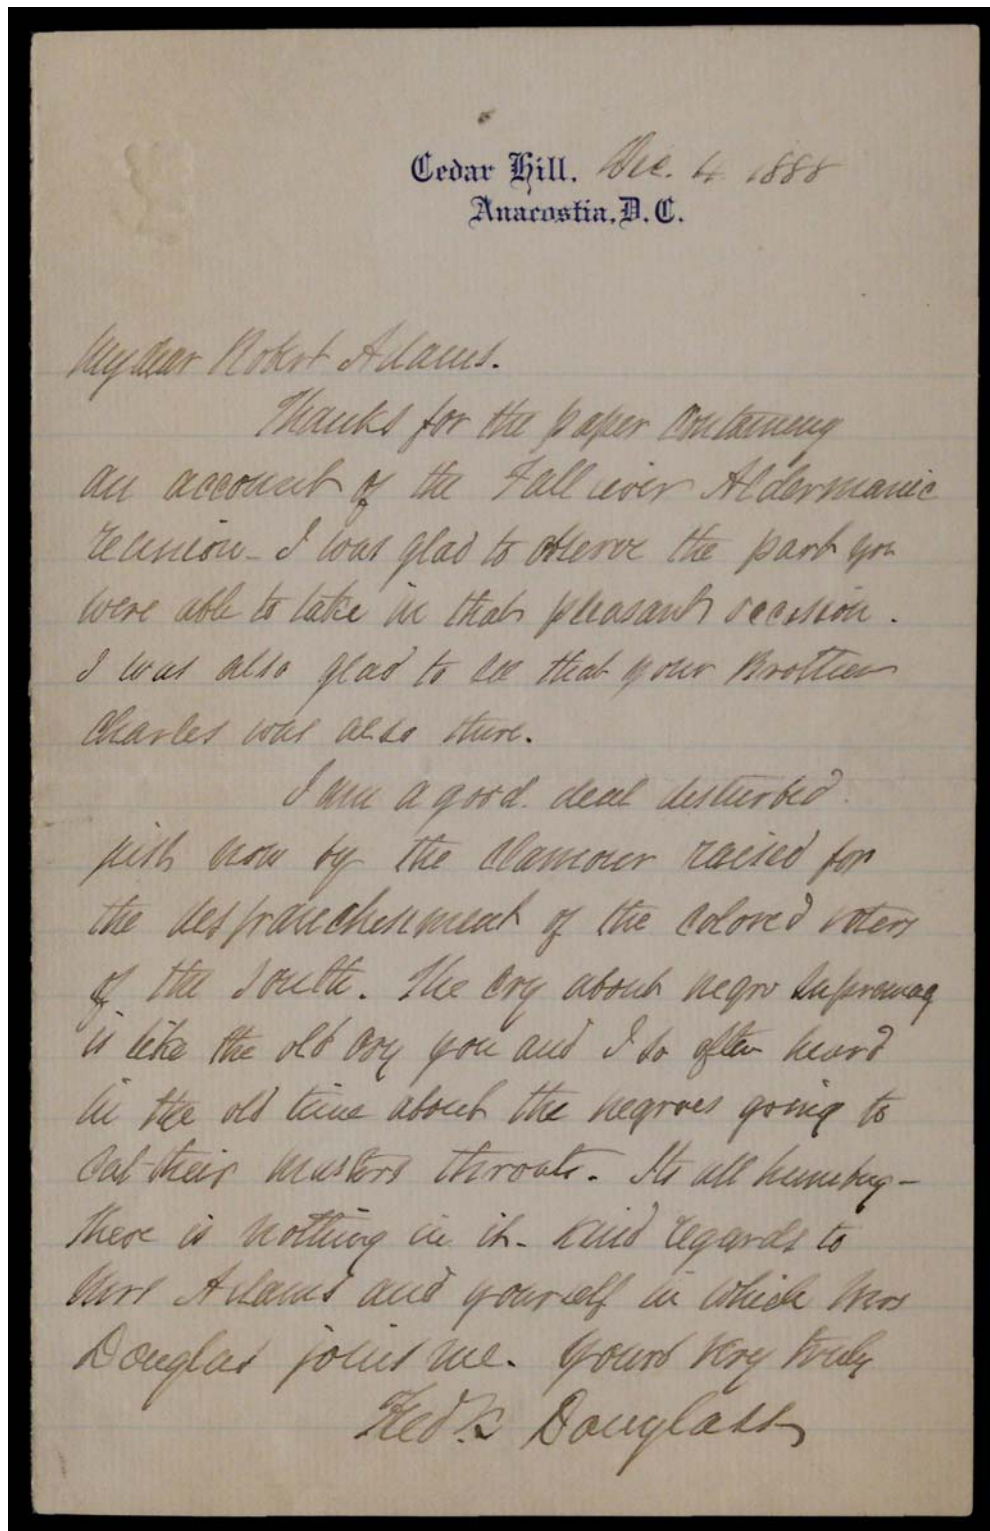 Cedar Hill. Dec. 4. 1888
Anacostia, D. C.
My dear Robert Adams.
Thanks for the paper containing
an account of the Fall river Aldermanic
reunion - I was glad to observe the part you
were able to take in that pleasant occasion.
I was also glad to see that your Brother
Charles was also there.
I am a good deal disturbed
just now by the clamour raised for
the disfranchisement of the colored voters
of the South. The cry about negro supremacy
is like the old cry you and I so often heard
in the old time about the negroes going to
cut their masters throats. Its all humbug -
there is nothing in it - Kind regards to
Mrs Adams and yourself in which Mrs
Douglas joins me. Yours very truly
Fredk Douglass